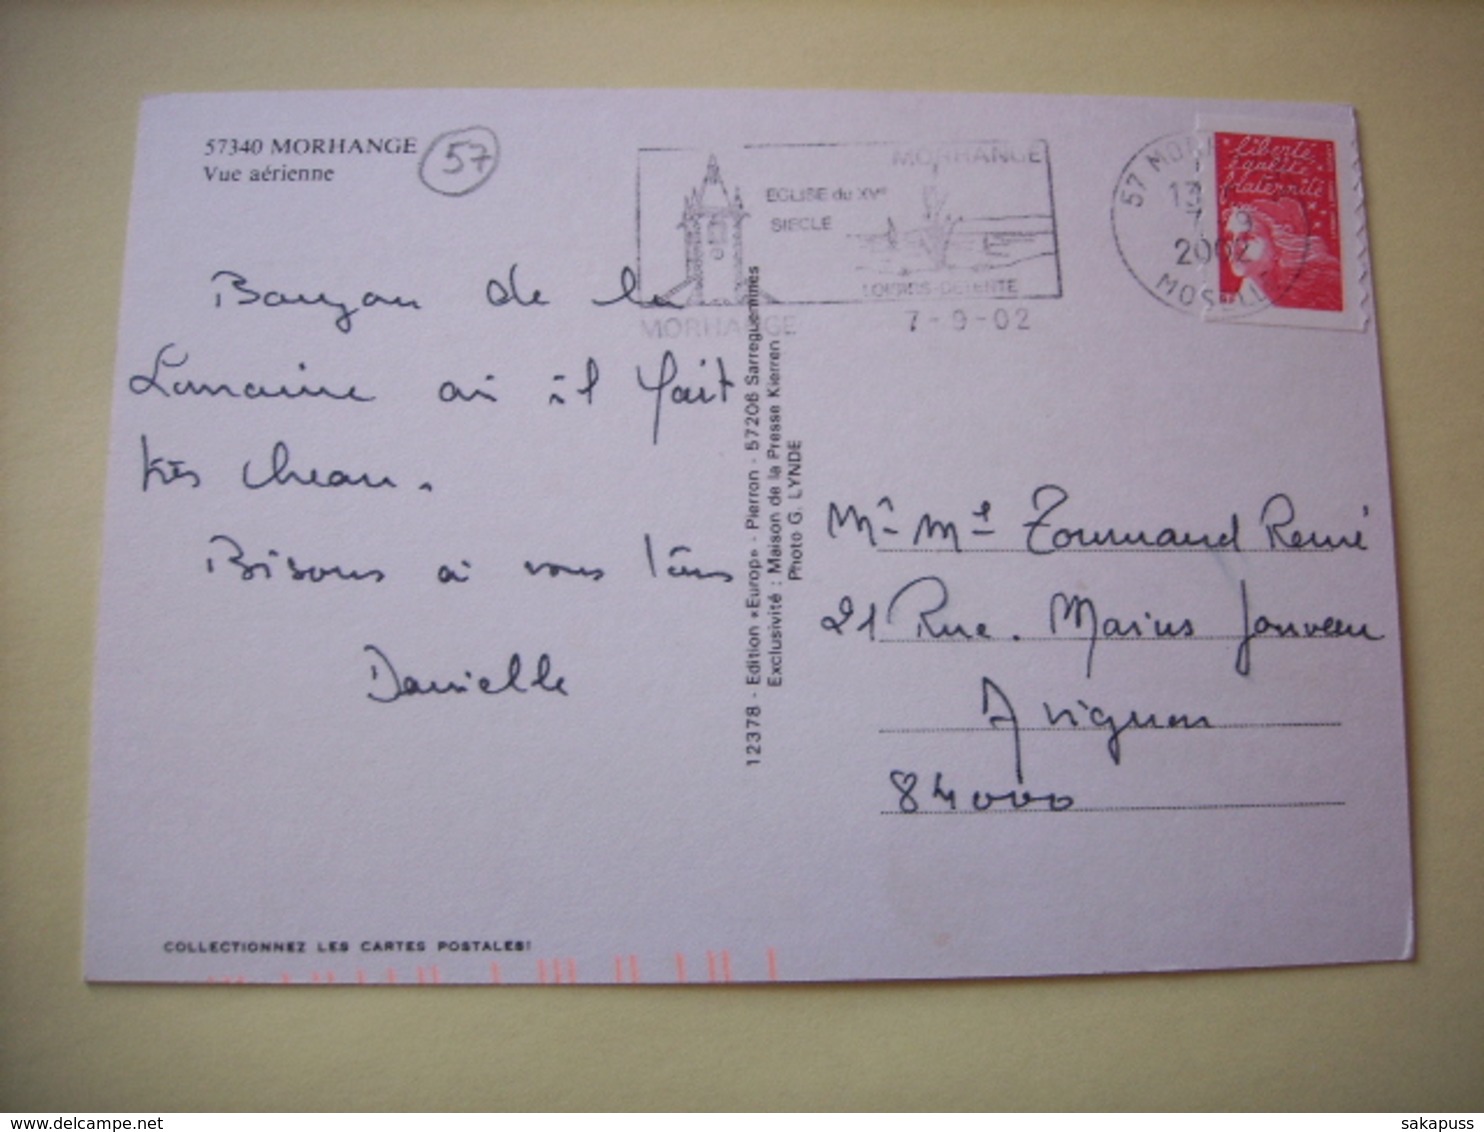 57340 MORHANGE
Vue aérienne
57
MORHANGE
EGLISE du XVe
SIECLE
LOISIRS-DETENTE
MORHANGE
7-9-02
57 MOR
13
7 9
2002
MOSELL
liberté
égalité
fraternité
Bonjour de la
Lorraine où il fait
très chaud.
Bisous à vous tous
Danielle
12378 - Edition «Europ» - Pierron - 57206 Sarreguemines
Exclusivité : Maison de la Presse Kierren
Photo G. LYNDE
Mr Me René
21 Rue. Marius Jouveau
Avignon
84000
COLLECTIONNEZ LES CARTES POSTALES!
sakapuss